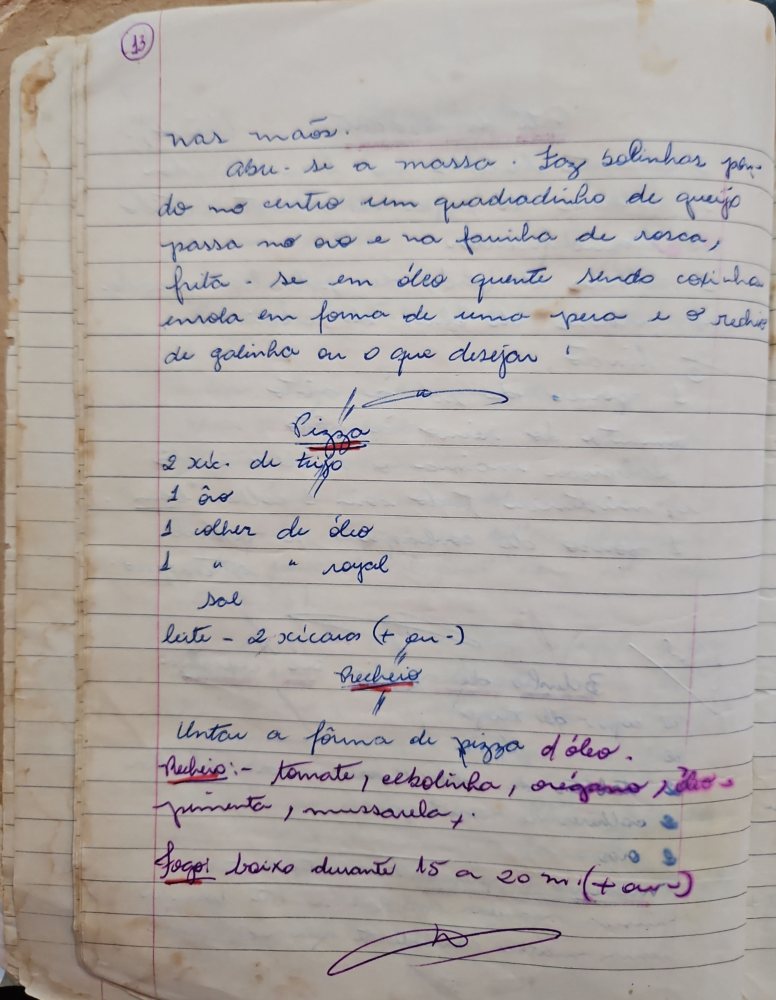 13
nas maõs.
abre-se a massa. Faz bolinhas pon-
do no centro um quadradinho de queijo
passa no ovo e na farinha de rosca,
frita-se em óleo quente sendo coxinha
enrola em forma de uma pera e o rechei
de galinha ou o que desejar
Pizza
2 xíc. de trigo
1 ôvo
1 colher de óleo
1 " " royal
sal
leite - 2 xícaras (+ ou -)
Recheio
Untar a fôrma de pizza d'óleo.
Recheio:- tomate, cebolinha, orégano, óleo
pimenta, mussarela,.
Fogo: baixo durante 15 a 20 m. (+ ou -)